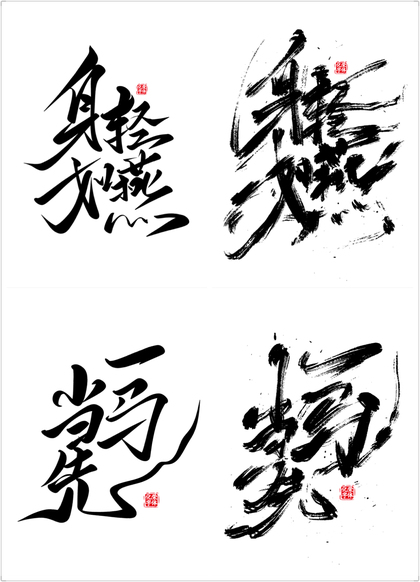 身轻
如燕
身轻
如燕
一马
当先
一马
当先